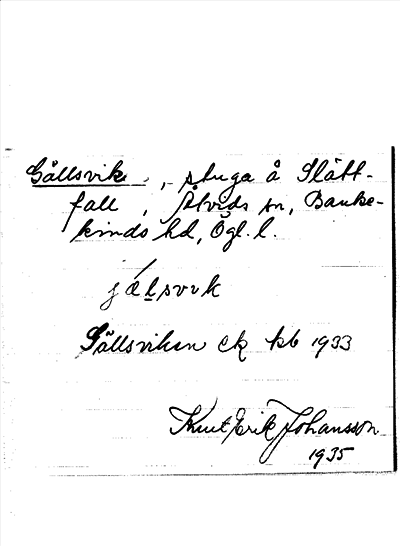 Gällsvik, stuga å Slätt-
fall, Åtvids sn, Banke-
kinds hd, Ögl. l.
jælsvik
Gällsviken ek kb 1933
Knut Erik Johansson
1935